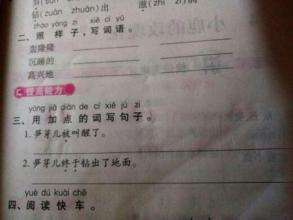 zhào yàng zi xiě cí yǔ
二、照 样 子，写 词 语。
轰隆隆
沉甸甸
高兴地
提高能力
yòng jiā diǎn de cí xiě jù zi
三、用 加 点 的 词 写 句 子。
1. 笋芽儿被叫醒了。
2. 笋芽儿终于钻出了地面。
yuè dú kuài chē
四、阅 读 快 车。